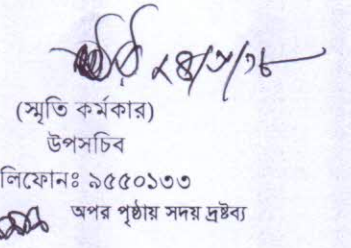 (স্মৃতি কর্মকার)
উপসচিব
লিফোনঃ ৯৫৫০১৩৩
অপর পৃষ্ঠায় সদয় দ্রষ্টব্য